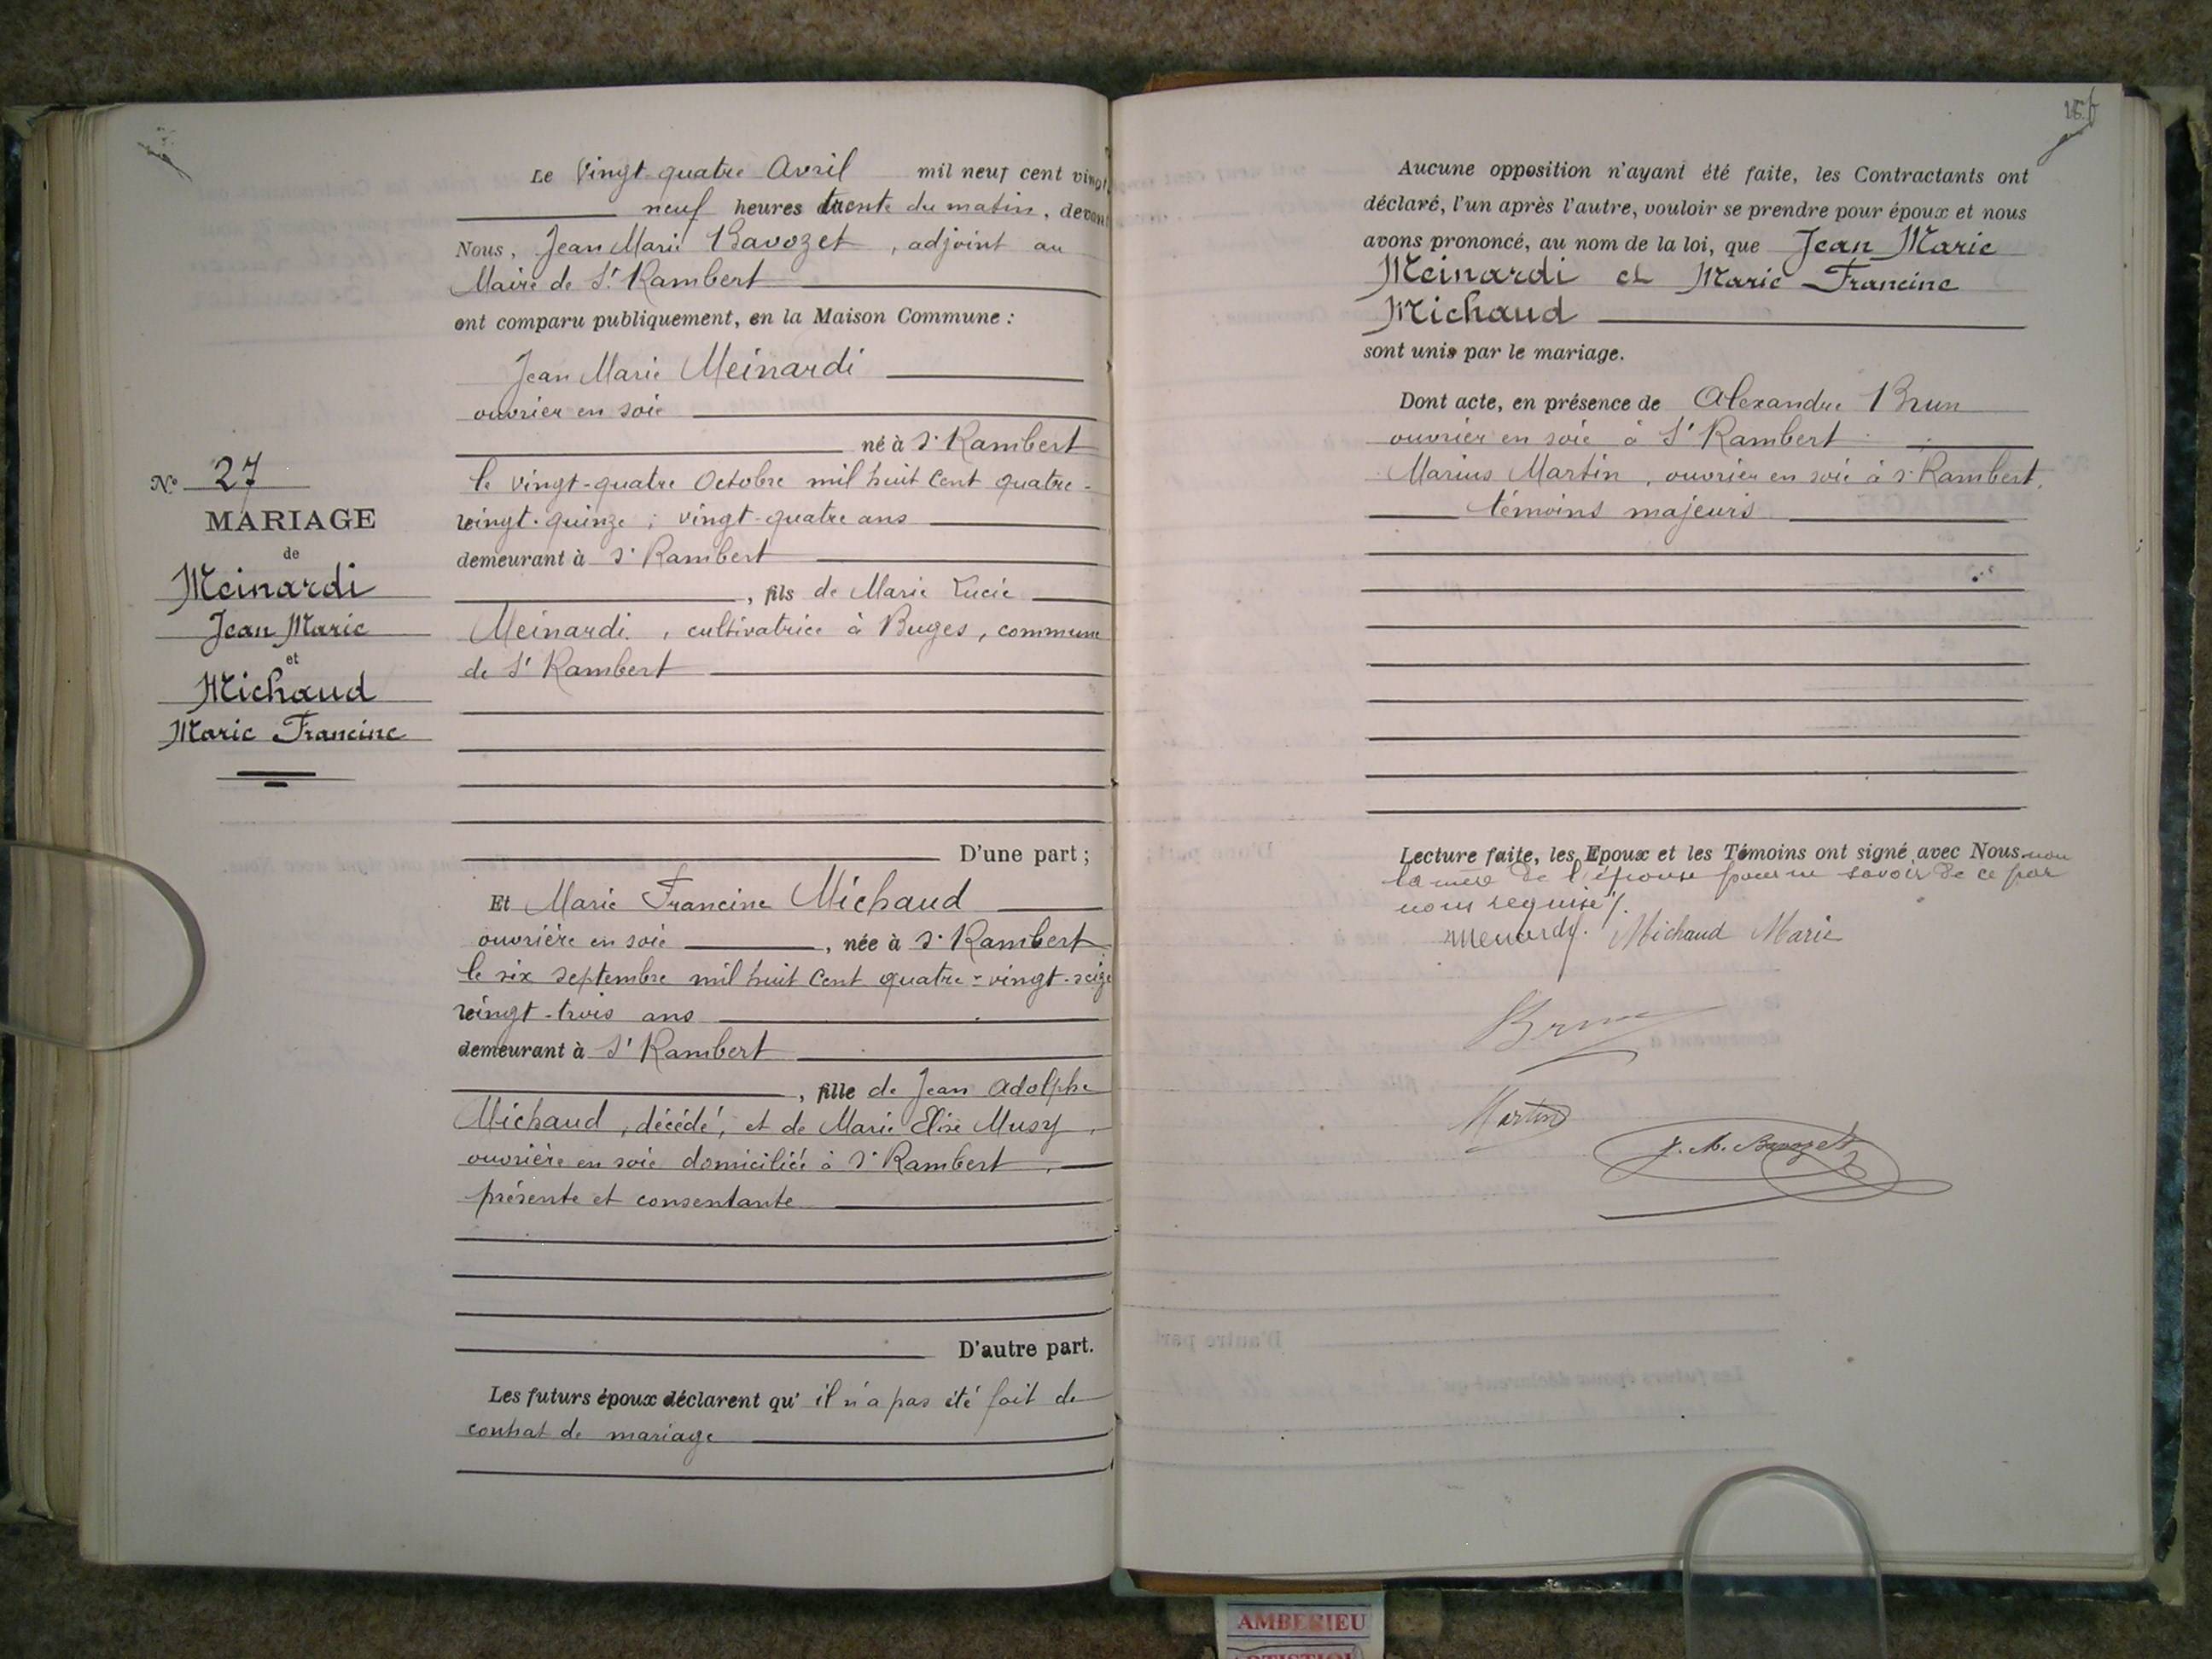 Le Vingt-quatre Avril mil neuf cent vingt
neuf heures trente du matin, devant
Nous, Jean Marie Bavozet, adjoint au
Maire de St Rambert
ont comparu publiquement, en la Maison Commune :
Jean Marie Meinardi
ouvrier en soie
né à St Rambert
le vingt-quatre Octobre mil huit cent quatre-
vingt-quinze ; vingt-quatre ans
demeurant à St Rambert
, fils de Marie Lucie
Meinardi, cultivatrice à Buges, commune
de St Rambert
D'une part ;
Et Marie Francine Michaud
ouvrière en soie, née à St Rambert
le six septembre mil huit cent quatre-vingt-seize
vingt-trois ans
demeurant à St Rambert
, fille de Jean Adolphe
Michaud, décédé, et de Marie Elise Musy,
ouvrière en soie domiciliée à St Rambert,
présente et consentante
D'autre part.
Les futurs époux déclarent qu'il n'a pas été fait de
contrat de mariage
No 27
MARIAGE
de
Meinardi
Jean Marie
et
Michaud
Marie Francine
Aucune opposition n'ayant été faite, les Contractants ont
déclaré, l'un après l'autre, vouloir se prendre pour époux et nous
avons prononcé, au nom de la loi, que Jean Marie
Meinardi et Marie Francine
Michaud
sont unis par le mariage.
Dont acte, en présence de Alexandre Brun
ouvrier en soie à St Rambert
Marius Martin, ouvrier en soie à St Rambert,
témoins majeurs
Lecture faite, les Epoux et les Témoins ont signé avec Nous non
la mère de l'épouse pour ne savoir de ce par
nous requise /.
Michaud Marie
Brun
Martin
J. M. Bavozet
AMBERIEU